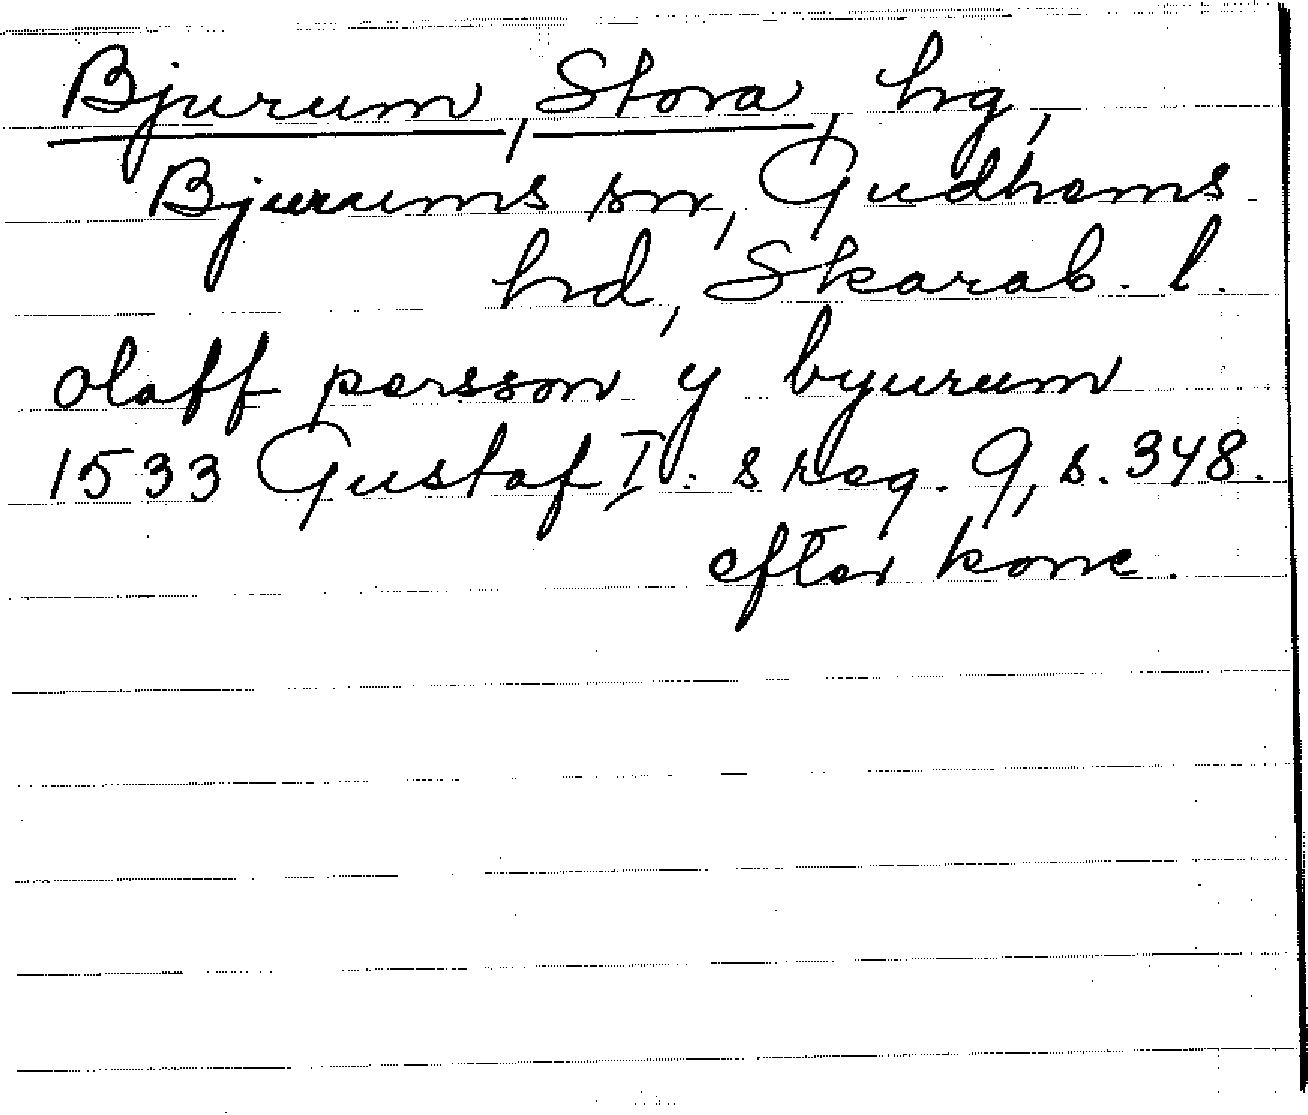 Bjurum, Stora, hg,
Bjurums sn, Gudhems
hd, Skarab. l.
olaff persson y byurum
1533 Gustaf I:s reg. 9, s. 348.
efter konc.